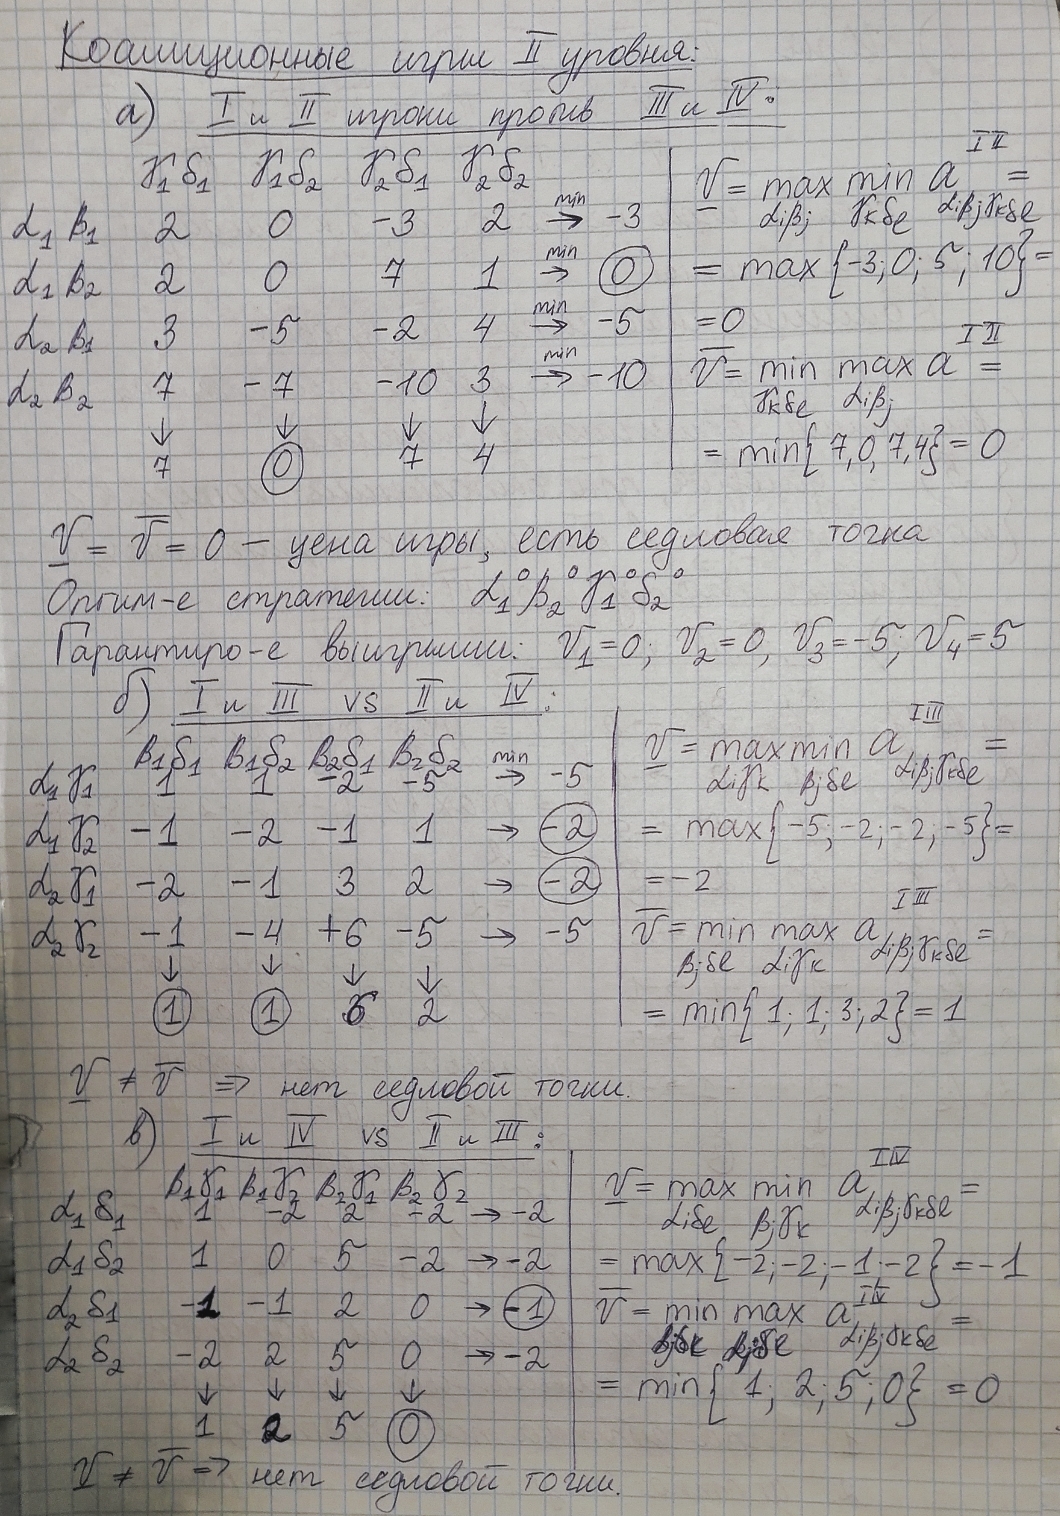 Коалиционные игры II уровня:
а) I и II игроки против III и IV:
γ₁δ₁ γ₁δ₂ γ₂δ₁ γ₂δ₂
α₁β₁ 2 0 -3 2 min→ -3
α₁β₂ 2 0 7 1 min→ 0
α₂β₁ 3 -5 -2 4 min→ -5
α₂β₂ 7 -7 -10 3 min→ -10
↓ ↓ ↓ ↓
7 0 7 4
V = max min a^{I II} =
αᵢβⱼ γₖδₑ αᵢβⱼγₖδₑ
= max{-3; 0; 5; 10} =
= 0
V̄ = min max a^{I II} =
γₖδₑ αᵢβⱼ
= min{7, 0, 7, 4} = 0
V = V̄ = 0 – цена игры, есть седловая точка
Оптим-е стратегии: α₁°β₂°γ₁°δ₂°
Гарантиро-е выигрыши: V₁=0; V₂=0, V₃=-5; V₄=5
б) I и III vs II и IV:
β₁δ₁ β₁δ₂ β₂δ₁ β₂δ₂
α₁γ₁ 1 1 -2 -5 min→ -5
α₁γ₂ -1 -2 -1 1 → -2
α₂γ₁ -2 -1 3 2 → -2
α₂γ₂ -1 -4 +6 -5 → -5
↓ ↓ ↓ ↓
1 1 6 2
V = max min a^{I III} =
αᵢγₖ βⱼδₑ αᵢβⱼγₖδₑ
= max{-5; -2; -2; -5} =
= -2
V̄ = min max a^{I III} =
βⱼδₑ αᵢγₖ αᵢβⱼγₖδₑ
= min{1; 1; 3; 2} = 1
V ≠ V̄ ⇒ нет седловой точки.
в) I и IV vs II и III:
β₁γ₁ β₁γ₂ β₂γ₁ β₂γ₂
α₁δ₁ 1 -2 2 -2 → -2
α₁δ₂ 1 0 5 -2 → -2
α₂δ₁ -1 -1 2 0 → -1
α₂δ₂ -2 2 5 0 → -2
↓ ↓ ↓ ↓
1 2 5 0
V = max min a^{I IV} =
αᵢδₑ βⱼγₖ αᵢβⱼγₖδₑ
= max{-2; -2; -1; -2} = -1
V̄ = min max a^{I IV} =
αᵢβⱼγₖδₑ
= min{1; 2; 5; 0} = 0
V ≠ V̄ ⇒ нет седловой точки.